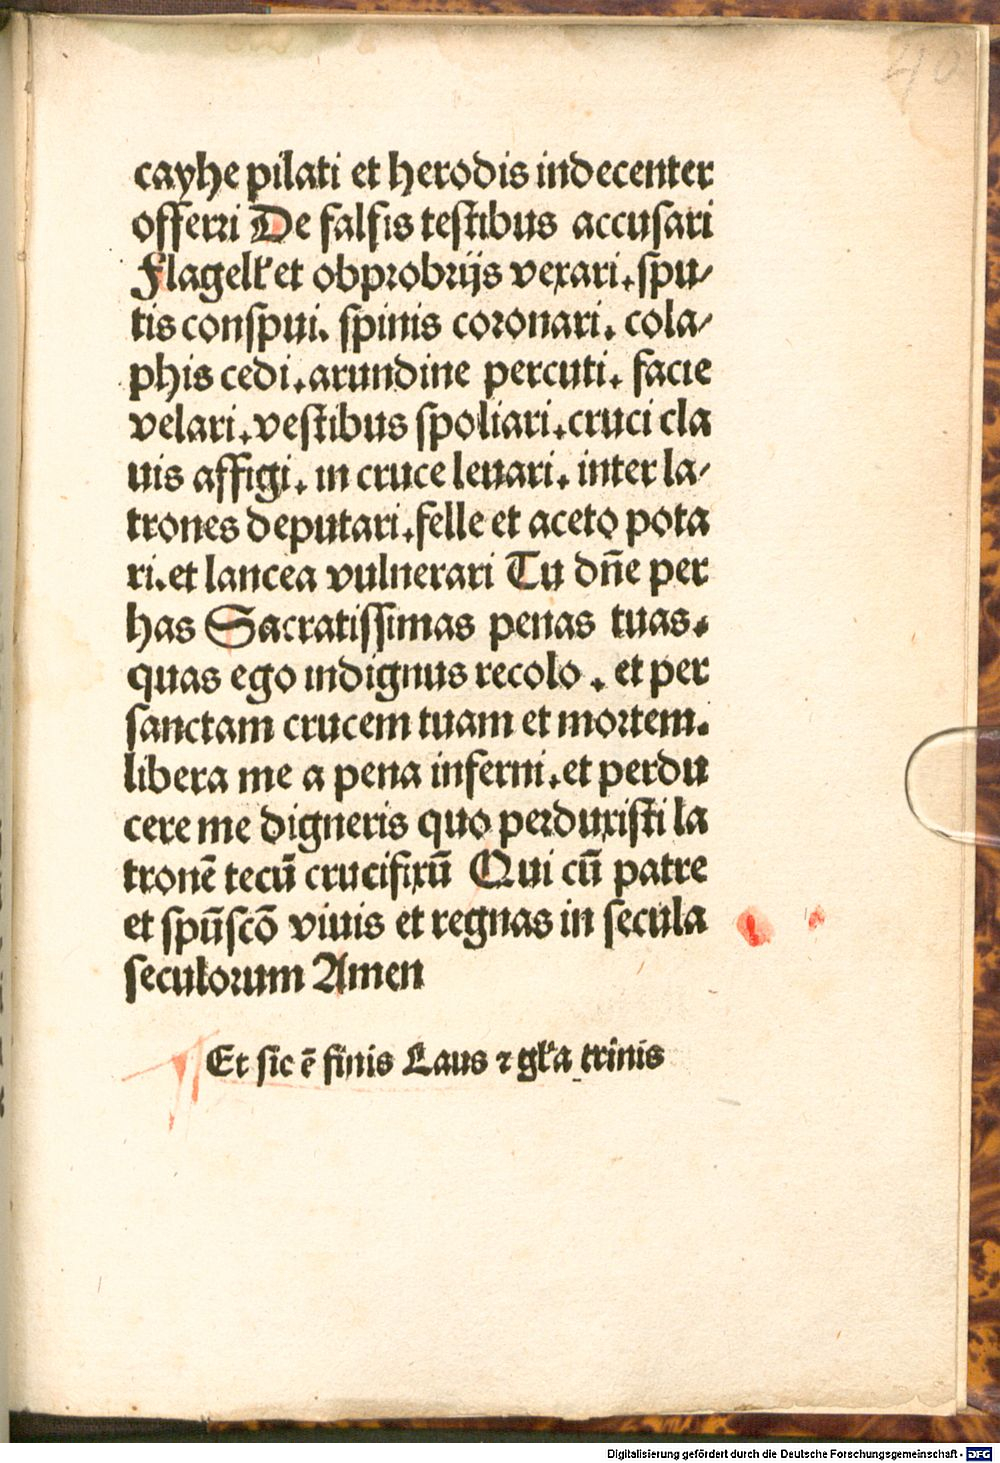 40
cayhe pilati et herodis indecenter
offerri De falsis testibus accusari
Flagell' et obprobrijs vexari. spu-
tis conspui. spinis coronari. cola-
phis cedi. arundine percuti. facie
velari. vestibus spoliari. cruci cla
uis affigi. in cruce leuari. inter la-
trones deputari. felle et aceto pota
ri. et lancea vulnerari Tu dn̄e per
has Sacratissimas penas tuas.
quas ego indignus recolo. et per
sanctam crucem tuam et mortem.
libera me a pena inferni. et perdu
cere me digneris quo perduxisti la
tronē tecū crucifixū Qui cū patre
et spūscō viuis et regnas in secula
seculorum Amen
Et sic ē finis Laus ⁊ gl'a trinis
Digitalisierung gefördert durch die Deutsche Forschungsgemeinschaft - DFG